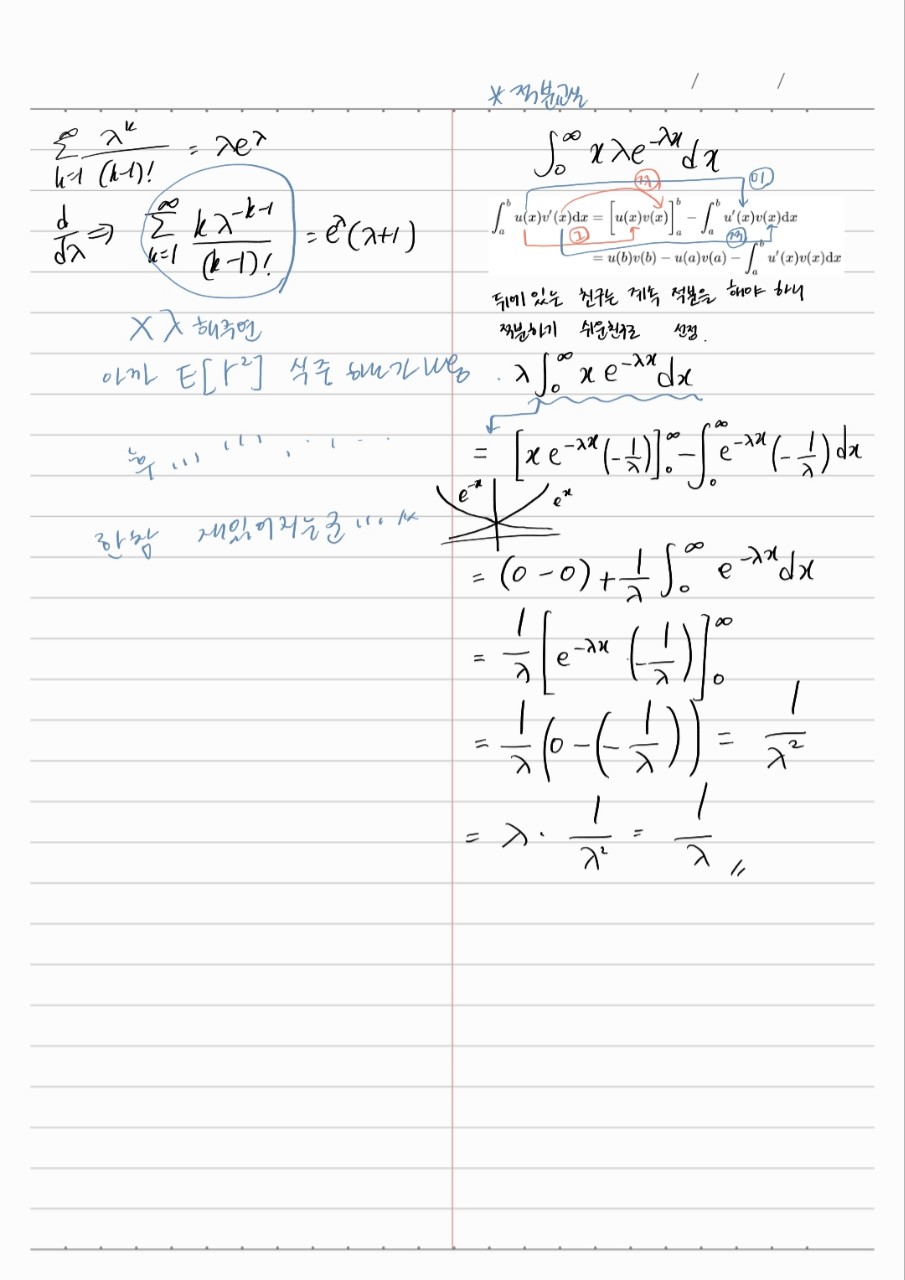 ∑_{k=1}^{∞} λ^k / (k-1)! = λe^λ
d/dλ ⇒ ∑_{k=1}^{∞} kλ^{-k-1} / (k-1)! = e^λ(λ+1)
×λ 해주면
아까 E[Y²] 식중 하나가 나옴
후 ...
한참 재밌어지는군 ...
* 적분교실
/ /
∫_0^∞ xλe^{-λx}dx
∫_a^b u(x)v'(x)dx = [u(x)v(x)]_a^b - ∫_a^b u'(x)v(x)dx
= u(b)v(b) - u(a)v(a) - ∫_a^b u'(x)v(x)dx
뒤에 있는 친구는 계속 적분을 해야 하니
적분하기 쉬운친구로 선정.
λ∫_0^∞ x e^{-λx}dx
= [x e^{-λx}(-1/λ)]_0^∞ - ∫_0^∞ e^{-λx}(-1/λ)dx
e^{-x} e^x
= (0-0) + 1/λ ∫_0^∞ e^{-λx}dx
= 1/λ [e^{-λx}(-1/λ)]_0^∞
= 1/λ (0-(-1/λ)) = 1/λ²
= λ · 1/λ² = 1/λ //